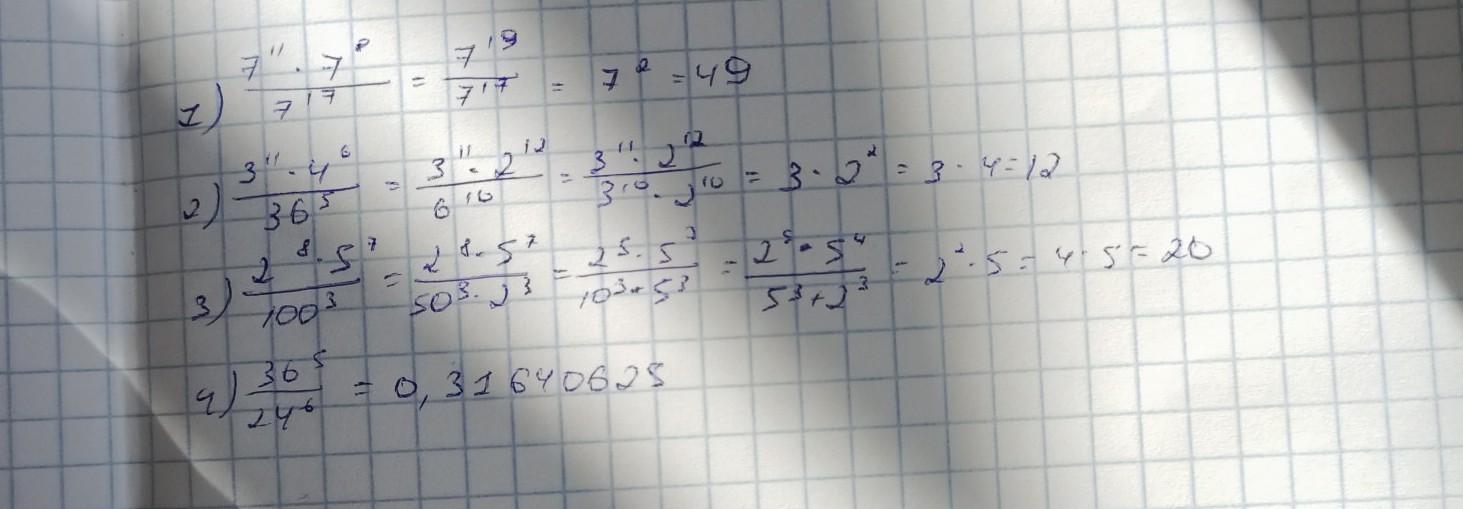 1) 7^11 · 7^8 / 7^17 = 7^19 / 7^17 = 7^2 = 49
2) 3^11 · 4^6 / 36^5 = 3^11 · 2^12 / 6^10 = 3^11 · 2^12 / 3^10 · 2^10 = 3 · 2^2 = 3 · 4 = 12
3) 2^8 · 5^7 / 100^3 = 2^8 · 5^7 / 50^3 · 2^3 = 2^5 · 5^7 / 10^3 · 5^3 = 2^5 · 5^4 / 5^3 + 2^3 = 2^2 · 5 = 4 · 5 = 20
4) 36^5 / 24^6 = 0,31640625